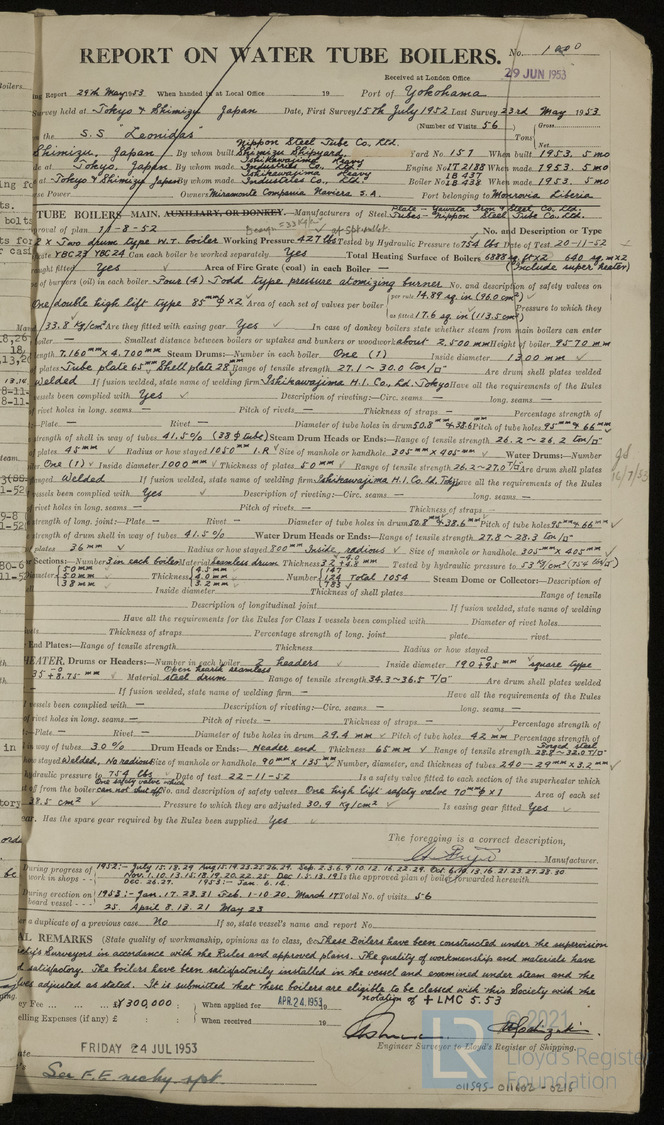 REPORT ON WATER TUBE BOILERS.
No.
Received at London Office
29 JUN 1953
Report 29th May 1953 When handed in at Local Office 19 Port of Yokohama
Survey held at Tokyo & Shimizu Japan Date, First Survey 15th July 1952 Last Survey 23rd May 1953
(Number of Visits 56) Gross
the S.S "Leonidas" Tons Net
Shimizu, Japan By whom built Nippon Steel Tube Co., Ltd. Shimizu Shipyard Yard No. 157 When built 1953. 5 mo
at Tokyo, Japan By whom made Ishikawajima Heavy Industries Co., Ltd. Engine No IT 2188 When made 1953. 5 mo
at Tokyo & Shimizu Japan By whom made Ishikawajima Heavy Industries Co., Ltd. Boiler No 1B 437 1B 438 When made 1953. 5 mo
Power Owners Miramonte Compania Naviera S.A. Port belonging to Monrovia Liberia
TUBE BOILERS—MAIN, AUXILIARY, OR DONKEY.—Manufacturers of Steel Tubes - Nippon Steel Tube Co., Ltd.
of plan 11-8-52 No. and Description or Type
2 x Two drum type W.T. boiler Working Pressure 427 lbs Tested by Hydraulic Pressure to 754 lbs Date of Test 20-11-52
YBC 23 YBC 24 Can each boiler be worked separately Yes Total Heating Surface of Boilers 6888 sq.ft x2 640 sq.m x2
fitted Yes Area of Fire Grate (coal) in each Boiler — (Include super heater)
of burners (oil) in each boiler Four (4) - Todd type pressure atomizing burner No. and description of safety valves on
One/double high lift type 85 mm φ x2 Area of each set of valves per boiler per rule 14.89 sq. in (96.0 cm²) as fitted 17.6 sq. in (113.5 cm²) Pressure to which they
33.8 kg/cm² Are they fitted with easing gear Yes In case of donkey boilers state whether steam from main boilers can enter
boiler — Smallest distance between boilers or uptakes and bunkers or woodwork about 2.500 mm Height of boiler 9570 mm
7.160 mm x 4.700 mm Steam Drums:—Number in each boiler One (1) Inside diameter 1300 mm
plates Tube plate 65 mm Shell plate 28 Range of tensile strength 27.1 ~ 30.0 ton/□" Are drum shell plates welded
Welded If fusion welded, state name of welding firm Ishikawajima H.I. Co., Ltd. Tokyo Have all the requirements of the Rules
vessels been complied with Yes Description of riveting:—Circ. seams — long. seams —
of rivet holes in long. seams — Pitch of rivets — Thickness of straps — Percentage strength of
Plate — Rivet — Diameter of tube holes in drum 50.8 mm & 38.6 Pitch of tube holes 95 mm & 66 mm
strength of shell in way of tubes 41.5% (38 φ tube) Steam Drum Heads or Ends:—Range of tensile strength 26.2 ~ 26.2 ton/□"
of plates 45 mm Radius or how stayed 1050 I.R. Size of manhole or handhole 305 mm x 405 mm Water Drums:—Number
One (1) Inside diameter 1000 mm Thickness of plates 50 mm Range of tensile strength 26.2~27.0 T/□" Are drum shell plates
Welded If fusion welded, state name of welding firm Ishikawajima H.I. Co. Ltd. Tokyo Have all the requirements of the Rules
vessels been complied with Yes Description of riveting:—Circ. seams — long. seams —
of rivet holes in long. seams — Pitch of rivets — Thickness of straps —
strength of long. joint:—Plate — Rivet — Diameter of tube holes in drum 50.8 mm & 38.6 mm Pitch of tube holes 95 mm & 66 mm
strength of drum shell in way of tubes 41.5% Water Drum Heads or Ends:—Range of tensile strength 27.8 ~ 28.3 ton/□"
plates 36 mm Radius or how stayed 800 mm Inside radious Size of manhole or handhole 305 mm x 405 mm
Sections:—Number 3 in each boiler Material Seamless drum Thickness Tested by hydraulic pressure to 53 kg/cm² (754 lbs/□")
50 mm 4.5 mm 147
Diameter 50 mm Thickness 4.0 mm Number 124 Total 1054 Steam Dome or Collector:—Description of
38 mm 3.2 mm 783
Inside diameter Thickness of shell plates Range of tensile
Description of longitudinal joint If fusion welded, state name of welding
Have all the requirements of the Rules for Class I vessels been complied with Diameter of rivet holes
rivets Thickness of straps Percentage strength of long. joint plate rivet
End Plates:—Range of tensile strength Thickness Radius or how stayed
HEATER, Drums or Headers:—Number in each boiler 2 headers Inside diameter 190 square type
Material Open hearth seamless steel drum Range of tensile strength 34.3~36.5 T/□" Are drum shell plates welded
If fusion welded, state name of welding firm — Have all the requirements of the Rules
vessels been complied with — Description of riveting:—Circ. seams — long. seams —
of rivet holes in long. seams — Pitch of rivets — Thickness of straps — Percentage strength of
Plate — Rivet — Diameter of tube holes in drum 29.4 mm Pitch of tube holes 42 mm Percentage strength of
way of tubes 30% Drum Heads or Ends:— Header end Thickness 65 mm Range of tensile strength Forged steel 28.8~32.0 T/□"
how stayed Welded, No radious Size of manhole or handhole 90 mm x 135 mm Number, diameter, and thickness of tubes 240—29 mm x 3.2 mm
hydraulic pressure to 754 lbs Date of test 22-11-52 Is a safety valve fitted to each section of the superheater which
off from the boiler One safety valve which can not shut off No. and description of safety valves One high lift safety valve 70 mm φ x 1 Area of each set
38.5 cm² Pressure to which they are adjusted 30.9 kg/cm² Is easing gear fitted Yes
Has the spare gear required by the Rules been supplied Yes
The foregoing is a correct description,
Manufacturer.
During progress of work in shops — 1952:- July 15.18.29 Aug 15.19.23.25.26.29. Sep. 2.3.6.9.10.12.16.22.29. Oct 6.10.13.16.21.23.27.28.30
Nov. 1.10.13.15.18.19.20.22.25 Dec 1.5.13.19 Is the approved plan of boiler forwarded herewith
Dec. 26.27. 1953:- Jan. 6.14.
During erection on board vessel — 1953:- Jan. 17. 28.31 Feb. 1-10-20. March 17 Total No. of visits 56
25. April 8.13.21 May 23
a duplicate of a previous case No If so, state vessel's name and report No.
REMARKS (State quality of workmanship, opinions as to class, &c. These Boilers have been constructed under the supervision
Surveyors in accordance with the Rules and approved plans. The quality of workmanship and materials have
satisfactory. The boilers have been satisfactorily installed in the vessel and examined under steam and the
adjusted as stated. It is submitted that these boilers are eligible to be classed with this Society with the
notation of + LMC 5.53
Fee ... ¥ 300,000 : When applied for APR.24.1953 19
Travelling Expenses (if any) £ : : When received 19
Engineer Surveyor to Lloyd's Register of Shipping.
Date FRIDAY 24 JUL 1953
See F.E. mchy rpt.
© 2021
LR
Lloyd's Register
Foundation
011595-011602-0215